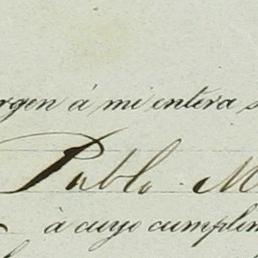 rgen á mi entera s
Pablo M
à cuyo cumplim